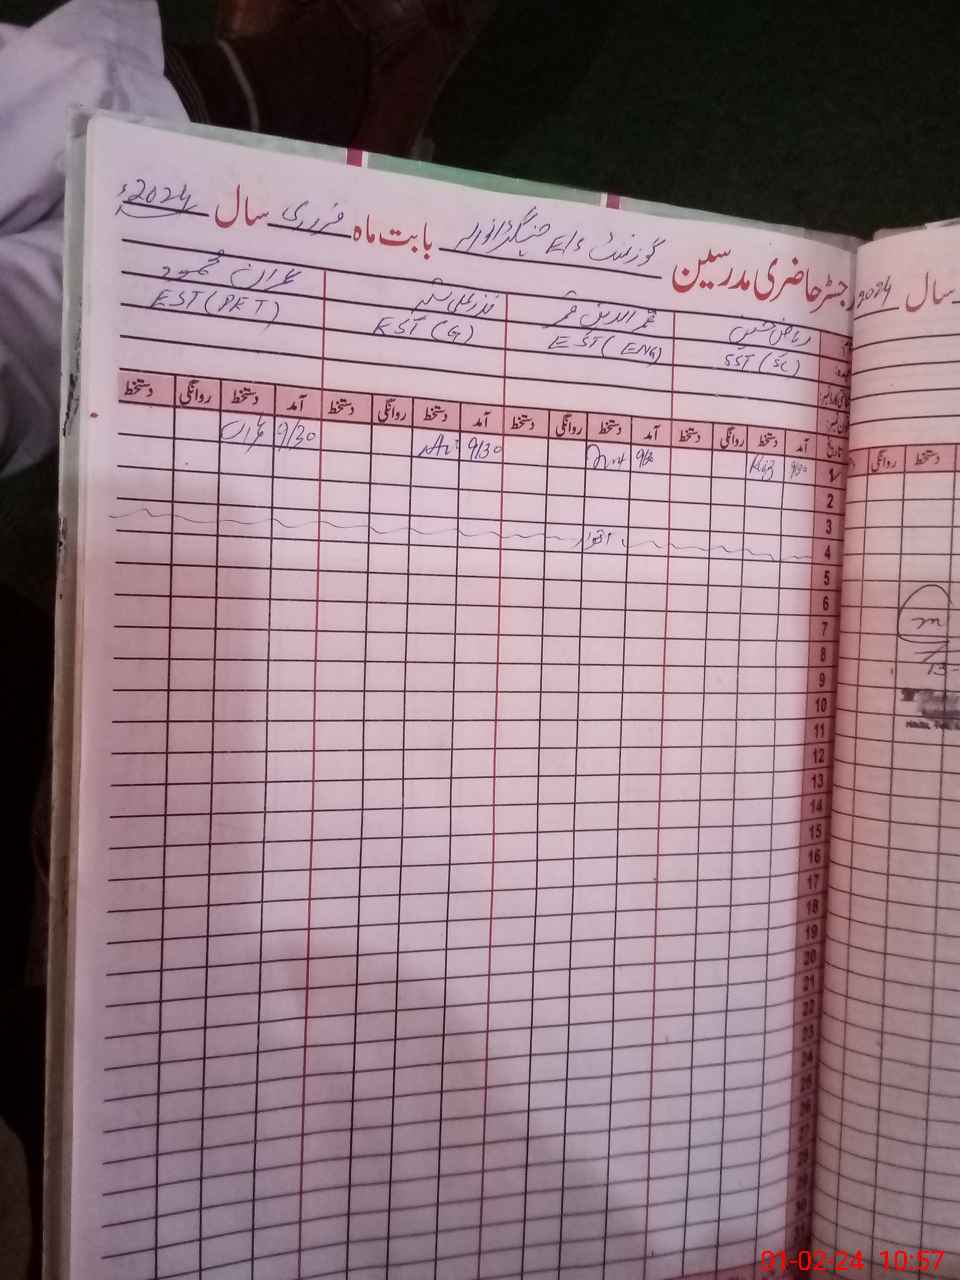 رجسٹر حاضری مدرسین گورنمنٹ E/S بابت ماہ فروری سال 2024ء
ریاض حسین قمر الدین قمر نذر علی شبیر عمران محمود
SST (SC) EST (ENG) EST (G) EST (PET)
تاریخ آمد دستخط روانگی دستخط آمد دستخط روانگی دستخط آمد دستخط روانگی دستخط آمد دستخط روانگی دستخط
1 9/30 9/30 9/30 عمران
2
3
4 اتوار
5
6
7
8
9
10
11
12
13
14
15
16
17
18
19
20
21
22
23
24
25
26
27
28
29
30
31
2024 سال
دستخط روانگی
01-02-24 10:57